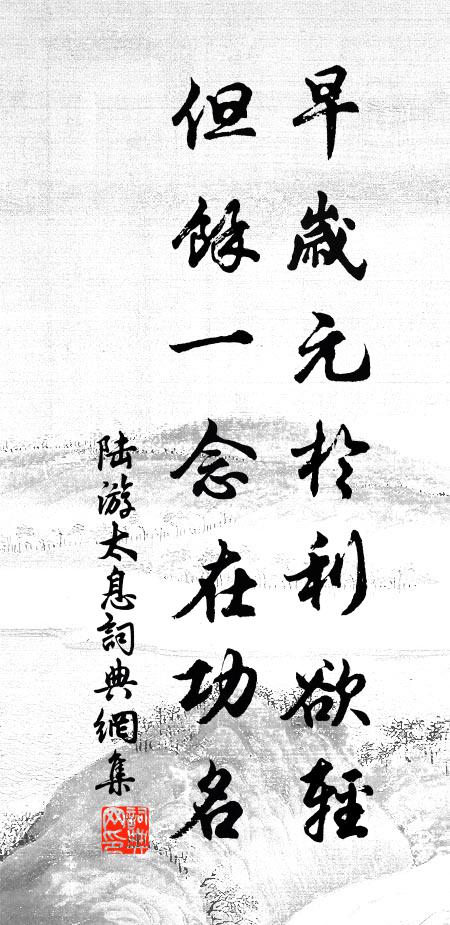 早歲元於利欲輕
但餘一念在功名
陆游太息詞典網集